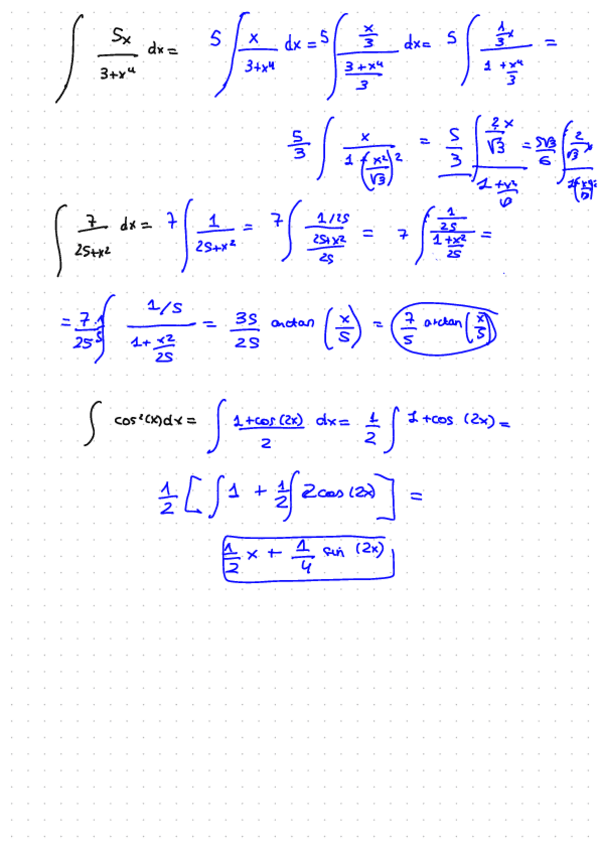 ∫ 5x/(3+x⁴) dx = 5 ∫ x/(3+x⁴) dx = 5 ∫ (x/3)/((3+x⁴)/3) dx = 5 ∫ (1/3 x)/(1+x⁴/3) =
5/3 ∫ x/(1+(x²/√3)²) = 5/3 ∫ (2/√3 x)/ = 5√3/6 ∫ 2/√3 x
∫ 7/(25+x²) dx = 7 ∫ 1/(25+x²) = 7 ∫ (1/25)/((25+x²)/25) = 7 ∫ (1/25)/((1+x²)/25) =
= 7·1/25 5 ∫ (1/5)/(1+x²/25) = 35/25 arctan (x/5) = 7/5 arctan (x/5)
∫ cos²(x)dx = ∫ (1+cos(2x))/2 dx = 1/2 ∫ 1+cos (2x) =
1/2 [∫ 1 + 1/2 ∫ 2cos(2x)] =
1/2 x + 1/4 sin (2x)